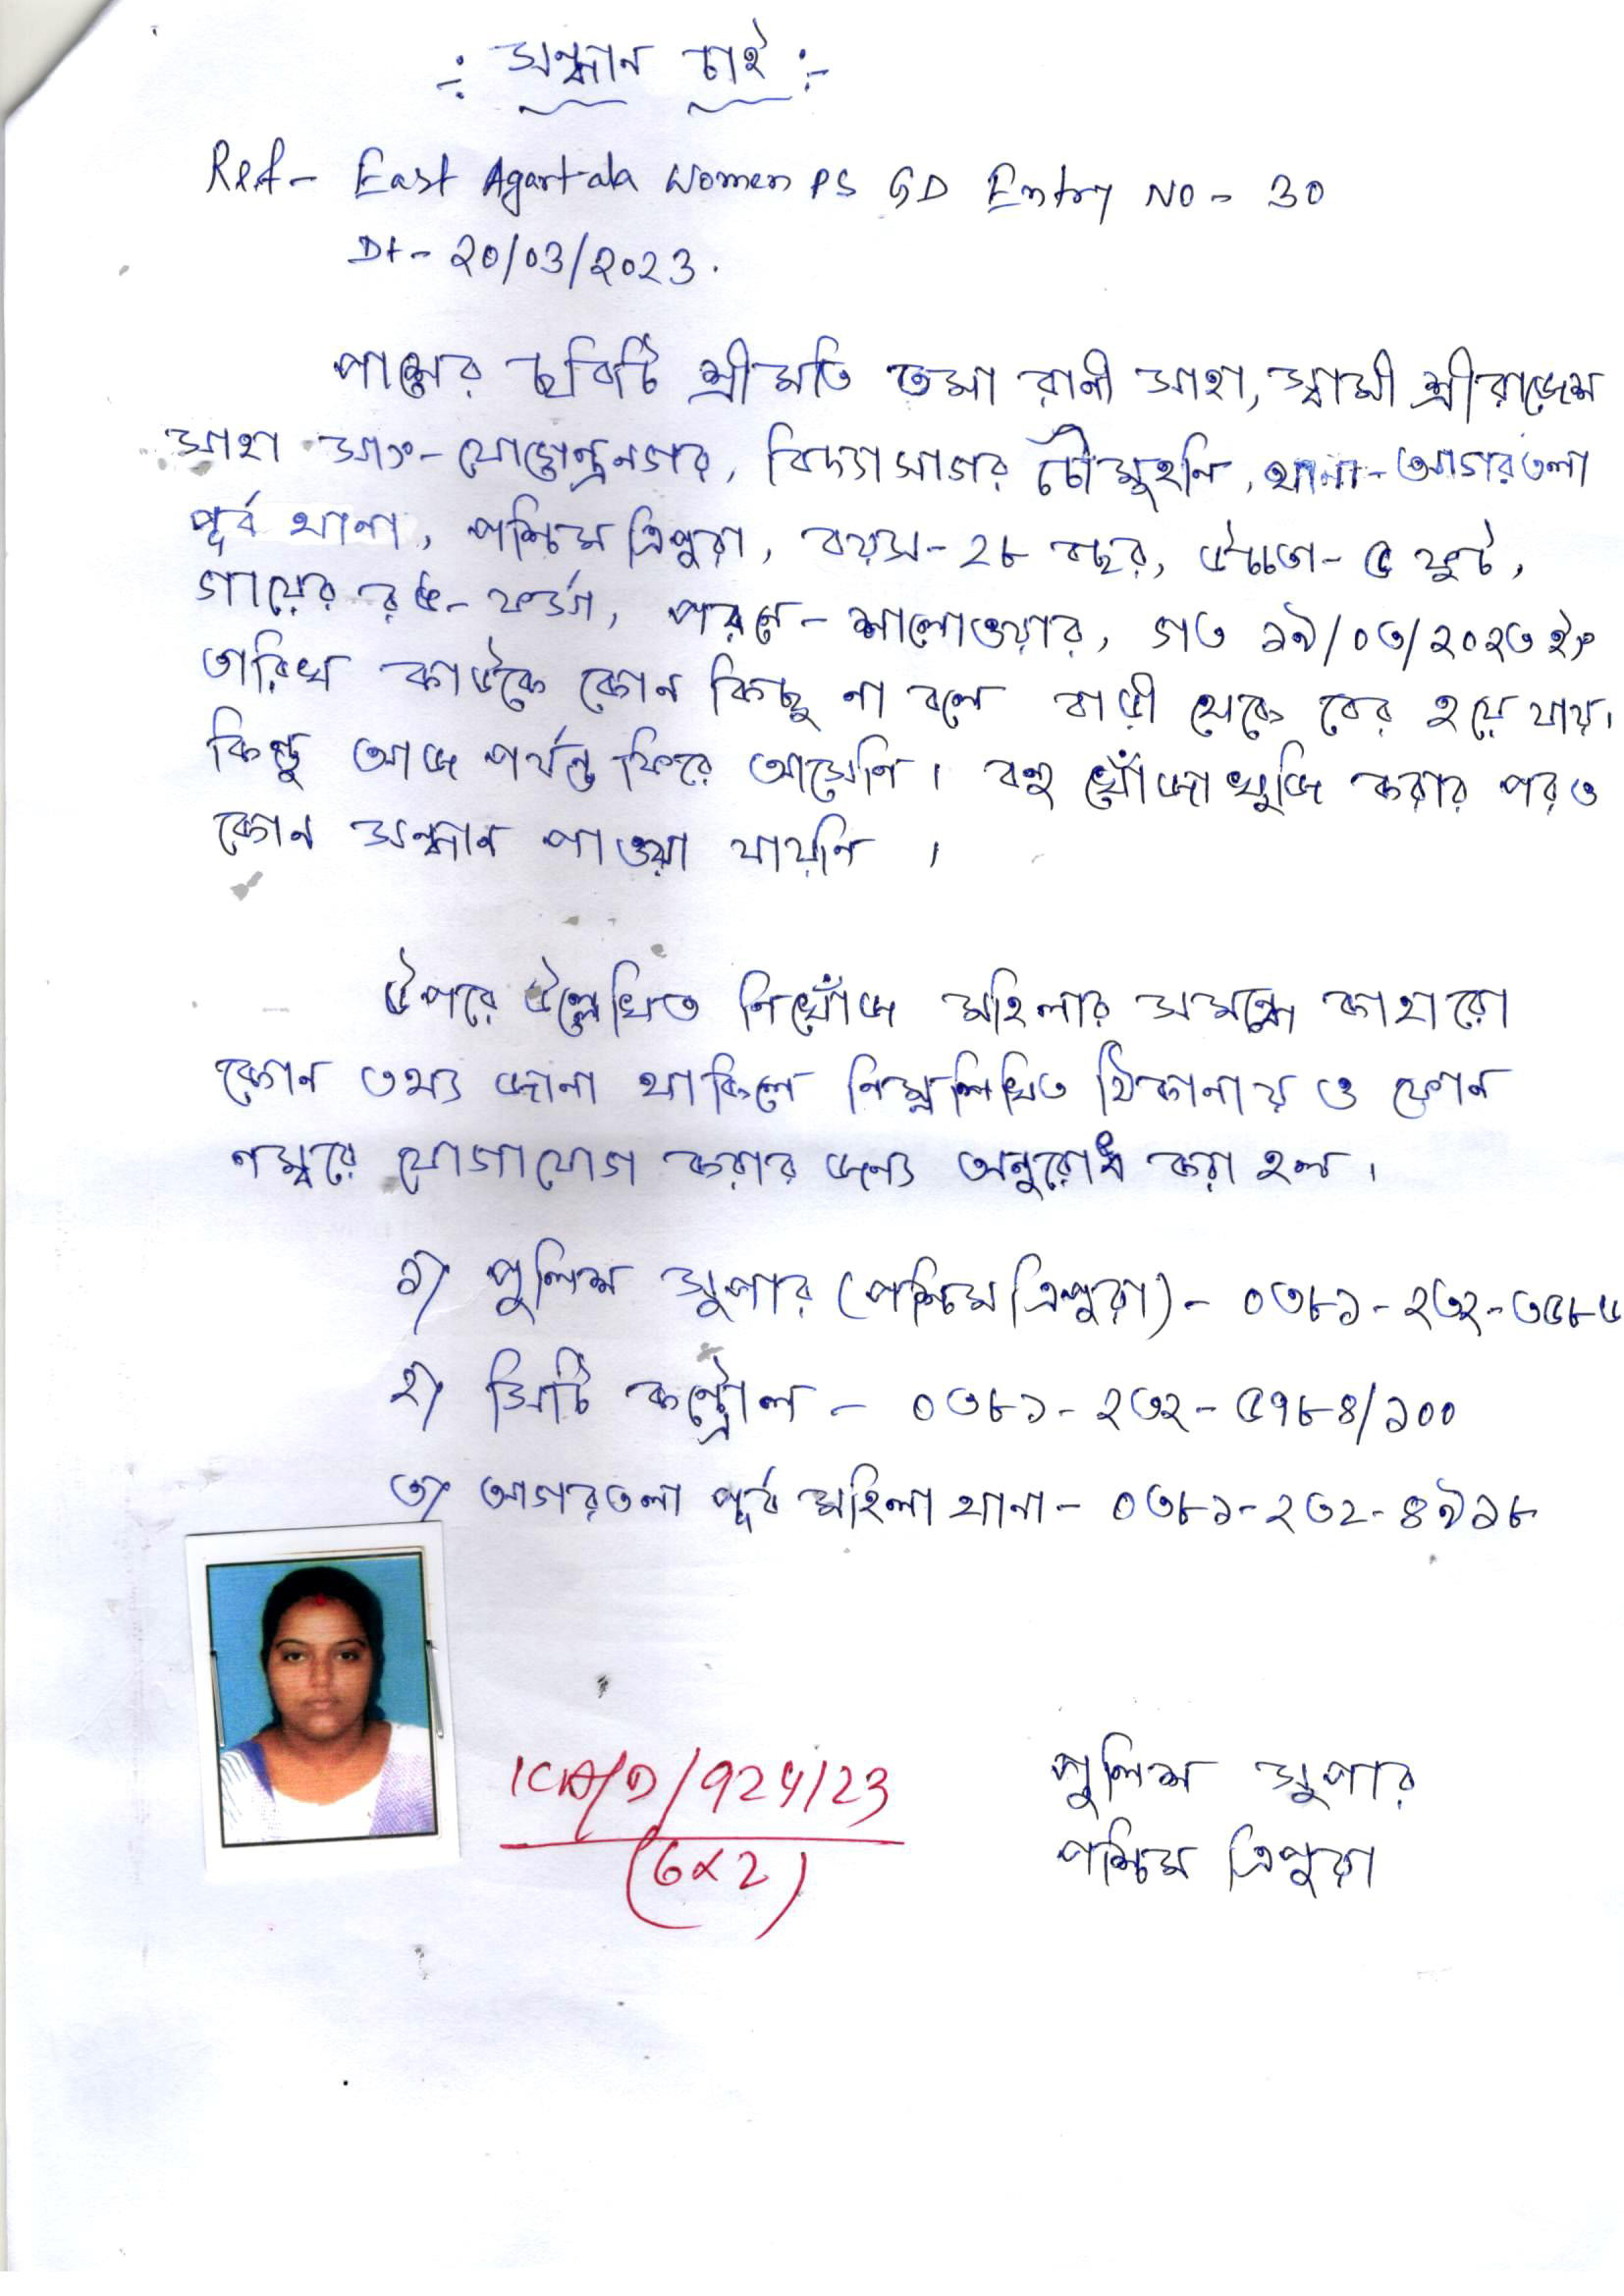 -: সন্ধান চাই :-
Ref - East Agartala Women PS GD Entry No - 30
Dt - 20/03/2023.
পাশের ছবিটি শ্রীমতি তমা রানী সাহা, স্বামী শ্রী রাজেশ
সাহা সাং - যোগেন্দ্রনগর, বিদ্যাসাগর চৌমুহনি, থানা - আগরতলা
পূর্ব থানা, পশ্চিম ত্রিপুরা, বয়স - ২৮ বছর, উচ্চতা - ৫ ফুট,
গায়ের রঙ - ফর্সা, পরনে - শালোওয়ার, গত ১৯/০৩/২০২৩ ইং
তারিখ কাউকে কোন কিছু না বলে বাড়ী থেকে বের হয়ে যায়।
কিন্তু আজ পর্যন্ত ফিরে আসেনি। বহু খোঁজাখুজি করার পরও
কোন সন্ধান পাওয়া যায়নি।
উপরে উল্লেখিত নিখোঁজ মহিলার সমন্ধে কাহারো
কোন তথ্য জানা থাকিলে নিম্নলিখিত ঠিকানায় ও ফোন
নম্বরে যোগাযোগ করার জন্য অনুরোধ করা হল।
১) পুলিশ সুপার (পশ্চিম ত্রিপুরা) - ০৩৮১-২৩২-৩৫৮৫
২) সিটি কন্ট্রোল - ০৩৮১-২৩২-৫৭৮৪/১০০
৩) আগরতলা পূর্ব মহিলা থানা - ০৩৮১-২৩২-৪৯১৮
ICA/D/924/23
(6x2)
পুলিশ সুপার
পশ্চিম ত্রিপুরা